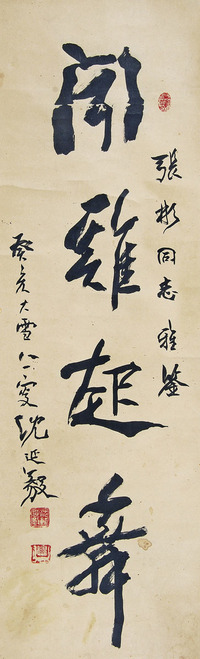 聞雞起舞
張彬同志雅鑒
癸亥大雪仁叟沈延毅